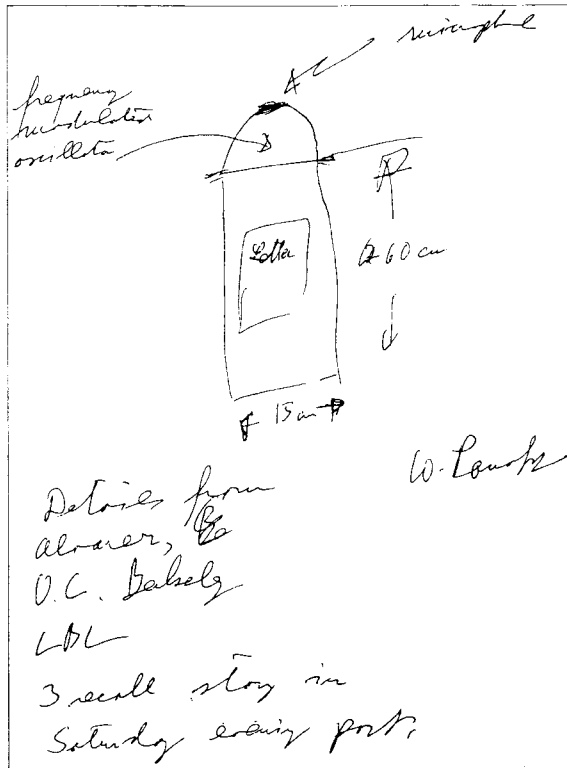 microphone
frequency
modulated
oscillator
Letter
60 cm
15 cm
W. Panofsky
Details from
Alvarez,
U.C. Berkeley
LBL
I recall story in
Saturday evening post.